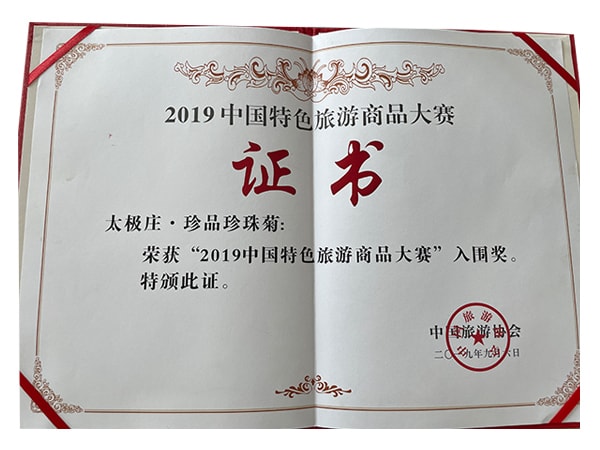 2019中国特色旅游商品大赛
证书
太极庄·珍品珍珠菊:
荣获“2019中国特色旅游商品大赛”入围奖。
特颁此证。
中国旅游协会
二〇一九年九月六日